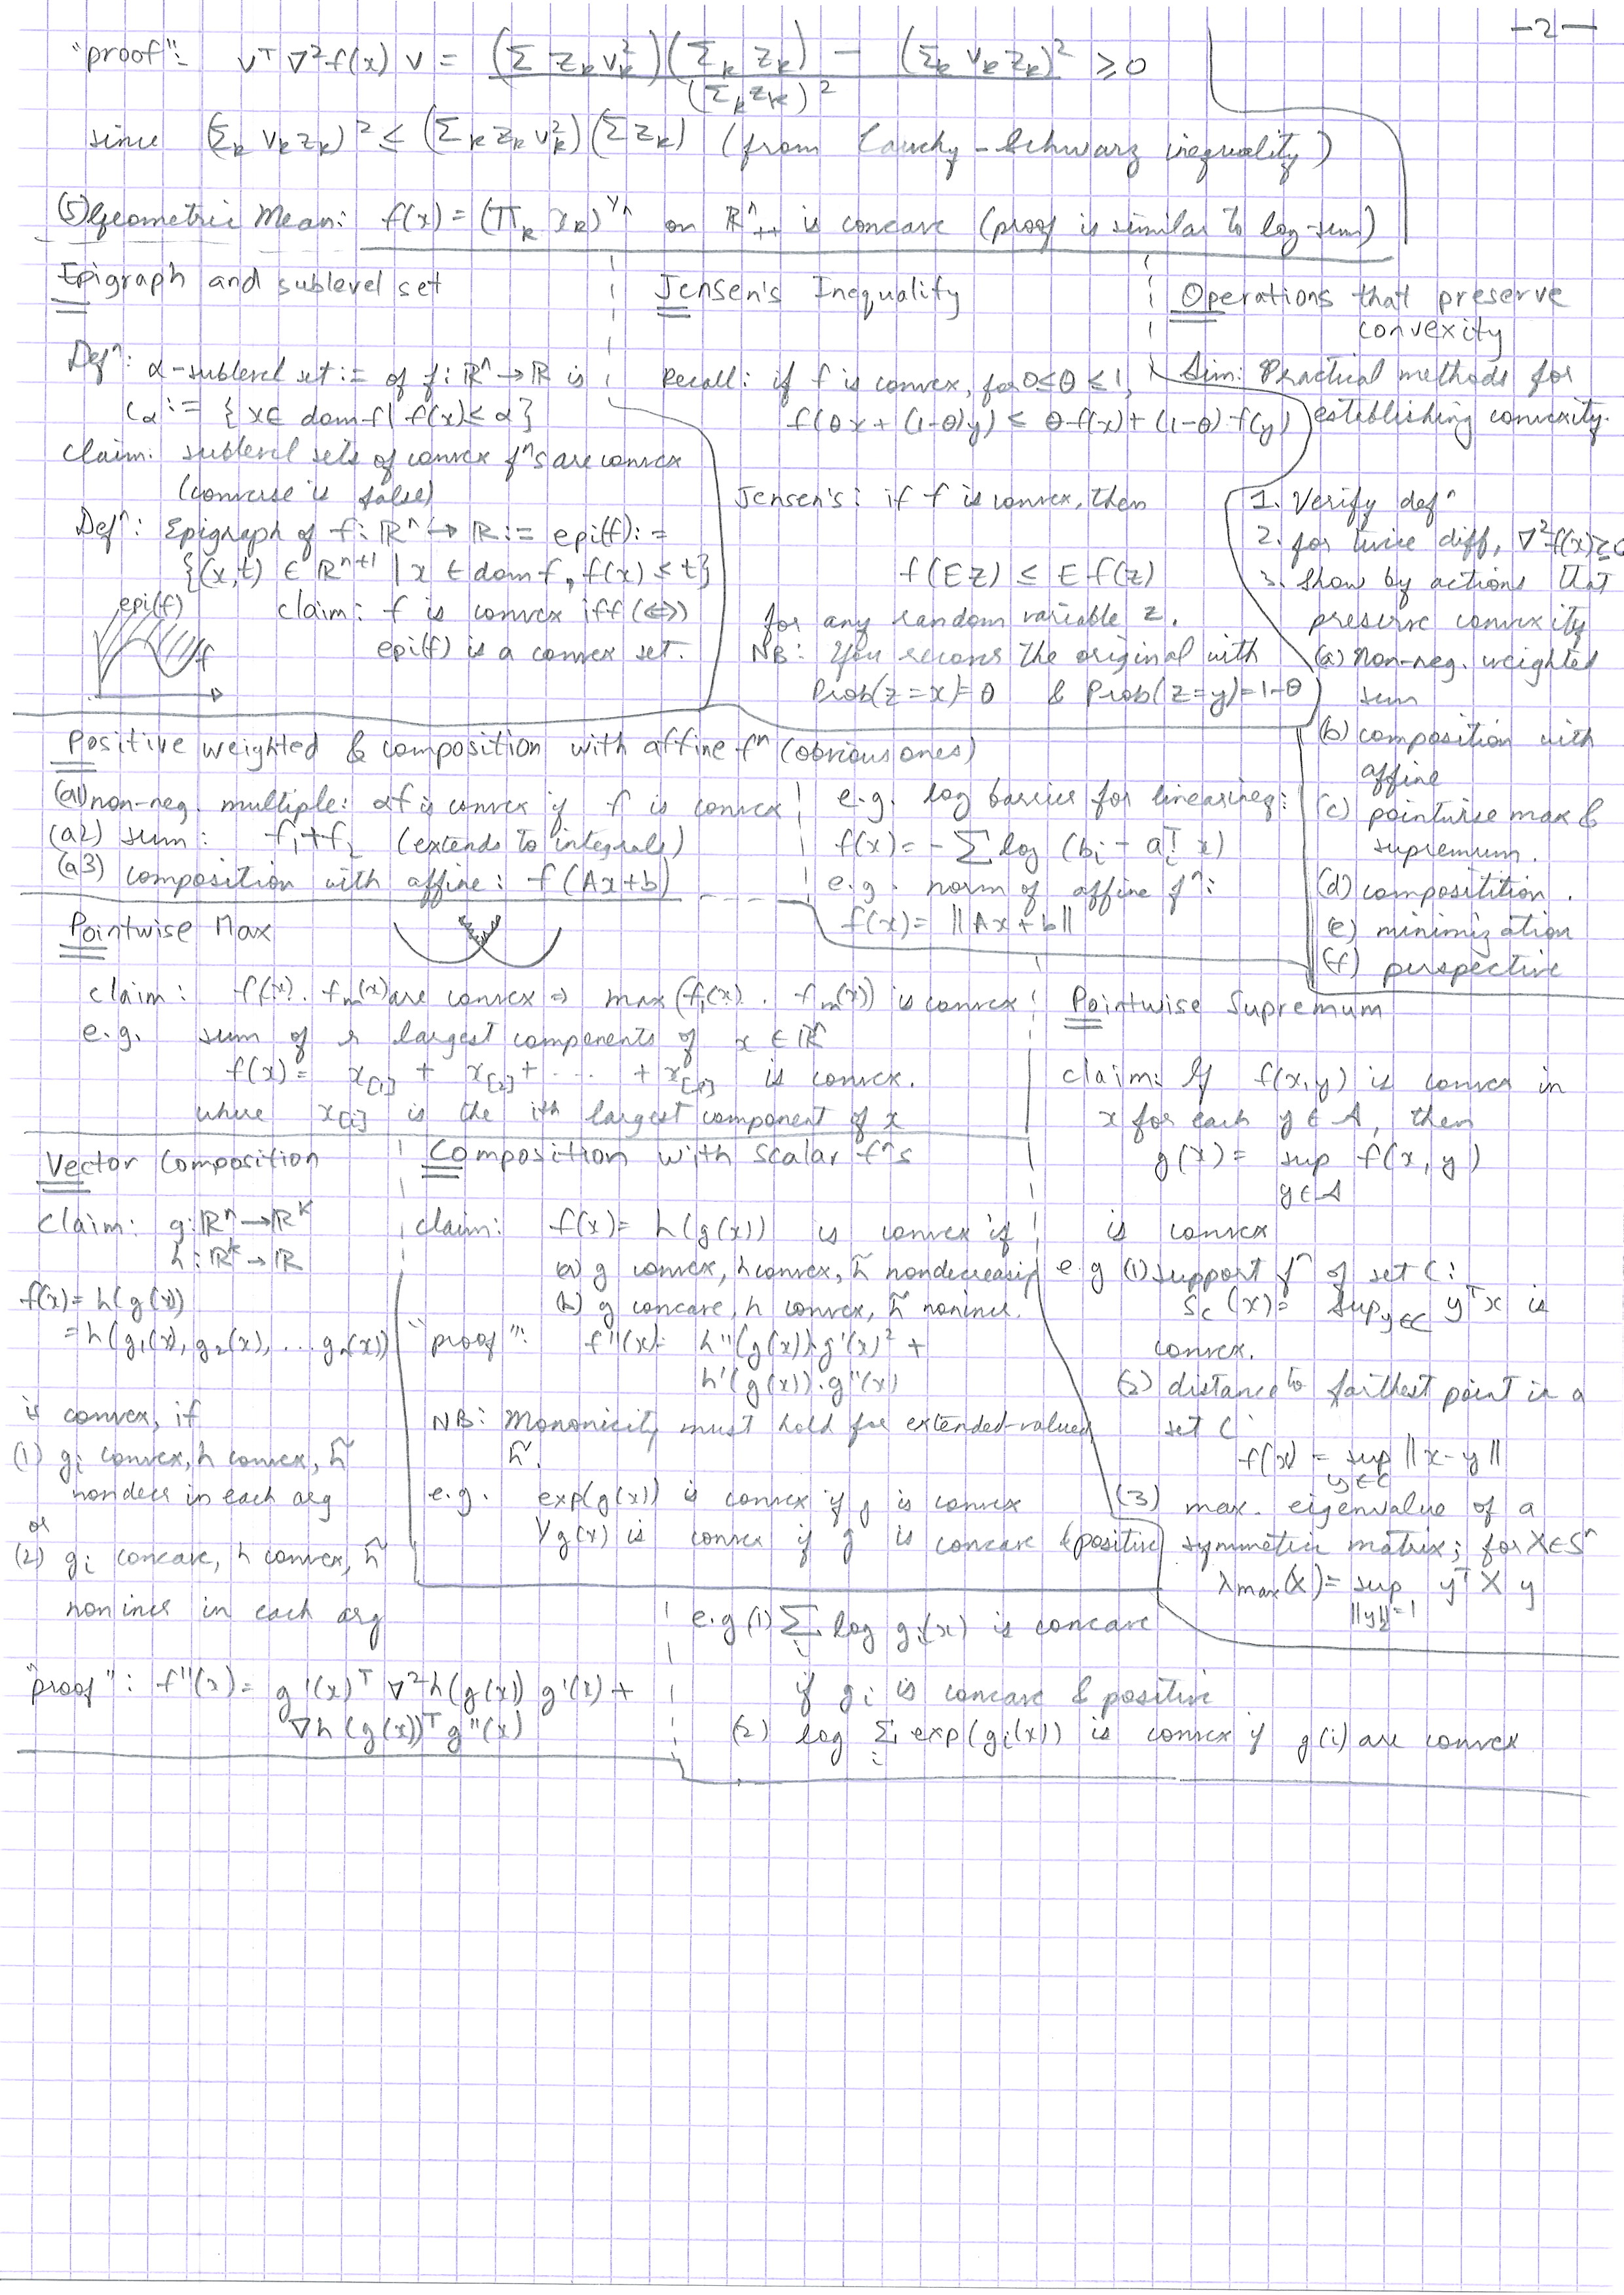 -2-
"proof": vᵀ∇²f(x) v = (Σ z_k v_k²)(Σ_k z_k) - (Σ_k v_k z_k)² / (Σ_k z_k)² ≥ 0
since (Σ_k v_k z_k)² ≤ (Σ_k z_k v_k²)(Σ z_k) (from Cauchy-Schwarz inequality)
(5) Geometric Mean: f(x) = (Π_k x_k)^{1/n} on ℝⁿ₊₊ is concave (proof is similar to log-sum)
Epigraph and sublevel set
Defⁿ: α-sublevel set := of f: ℝⁿ→ℝ is
C_α := {x ∈ dom f | f(x) ≤ α}
Claim: sublevel sets of convex fⁿs are convex
(converse is false)
Defⁿ: Epigraph of f: ℝⁿ↦ℝ := epi(f) :=
{(x,t) ∈ ℝⁿ⁺¹ | x ∈ dom f, f(x) ≤ t}
epi(f)
f
claim: f is convex iff (⇔)
epi(f) is a convex set.
Jensen's Inequality
Recall: if f is convex, for 0≤θ≤1,
f(θx + (1-θ)y) ≤ θ f(x) + (1-θ) f(y)
Jensen's: if f is convex, then
f(E z) ≤ E f(z)
for any random variable z.
NB: You recons the original with
Prob(z=x)=θ & Prob(z=y)=1-θ
Operations that preserve
convexity
Aim: Practical methods for
establishing convexity.
1. Verify defⁿ
2. for twice diff, ∇²f(x)≥0
3. Show by actions that
preserve convexity
(a) Non-neg. weighted
sum
(b) composition with
affine
(c) pointwise max &
supremum.
(d) compositition.
(e) minimization
(f) perspective
Positive weighted & composition with affine fⁿ (obvious ones)
(a1) non-neg. multiple: αf is convex if f is convex
(a2) sum: f₁+f₂ (extends to integrals)
(a3) composition with affine: f(Ax+b)
e.g. log barrier for linear ineq:
f(x) = -Σ log (b_i - a_iᵀ x)
e.g. norm of affine fⁿ:
f(x) = ||Ax+b||
Pointwise Max
claim: f₁(x). f_m(x) are convex ⇒ max (f₁(x). f_m(x)) is convex
e.g. sum of r largest components of x ∈ ℝⁿ
f(x) = x_[1] + x_[2] + ... + x_[r] is convex.
where x_[i] is the ith largest component of x
Pointwise Supremum
claim: If f(x,y) is convex in
x for each y ∈ A, then
g(x) = sup f(x,y)
y∈A
is convex
e.g (1) support fⁿ of set C:
S_C(x) = sup_{y∈C} yᵀx is
convex.
(2) distance to farthest point in a
set C
f(x) = sup ||x-y||
y∈C
(3) max. eigenvalue of a
symmetric matrix; for X∈Sⁿ
λmax(X) = sup yᵀ X y
||y||₂=1
Vector Composition
Claim: g: ℝⁿ→ℝᵏ
h: ℝᵏ→ℝ
f(x) = h(g(x))
= h(g₁(x), g₂(x), ... g_k(x))
is convex, if
(1) g_i convex, h convex, h̃
nondecr in each arg
or
(2) g_i concave, h convex, h̃
nonincr in each arg
"proof": f''(x) = g'(x)ᵀ ∇²h(g(x)) g'(x) +
∇h(g(x))ᵀ g''(x)
Composition with scalar fⁿs
claim: f(x) = h(g(x)) is convex if
(a) g convex, h convex, h̃ nondecreasing
(b) g concave, h convex, h̃ nonincr.
"proof": f''(x) = h''(g(x)).g'(x)² +
h'(g(x)).g''(x)
NB: Mononicity must hold for extended-valued
h̃.
e.g. exp(g(x)) is convex if g is convex
1/g(x) is convex if g is concave & positive
e.g (1) Σ_i log g_i(x) is concave
if g_i is concave & positive
(2) log Σ_i exp(g_i(x)) is convex if g(i) are convex